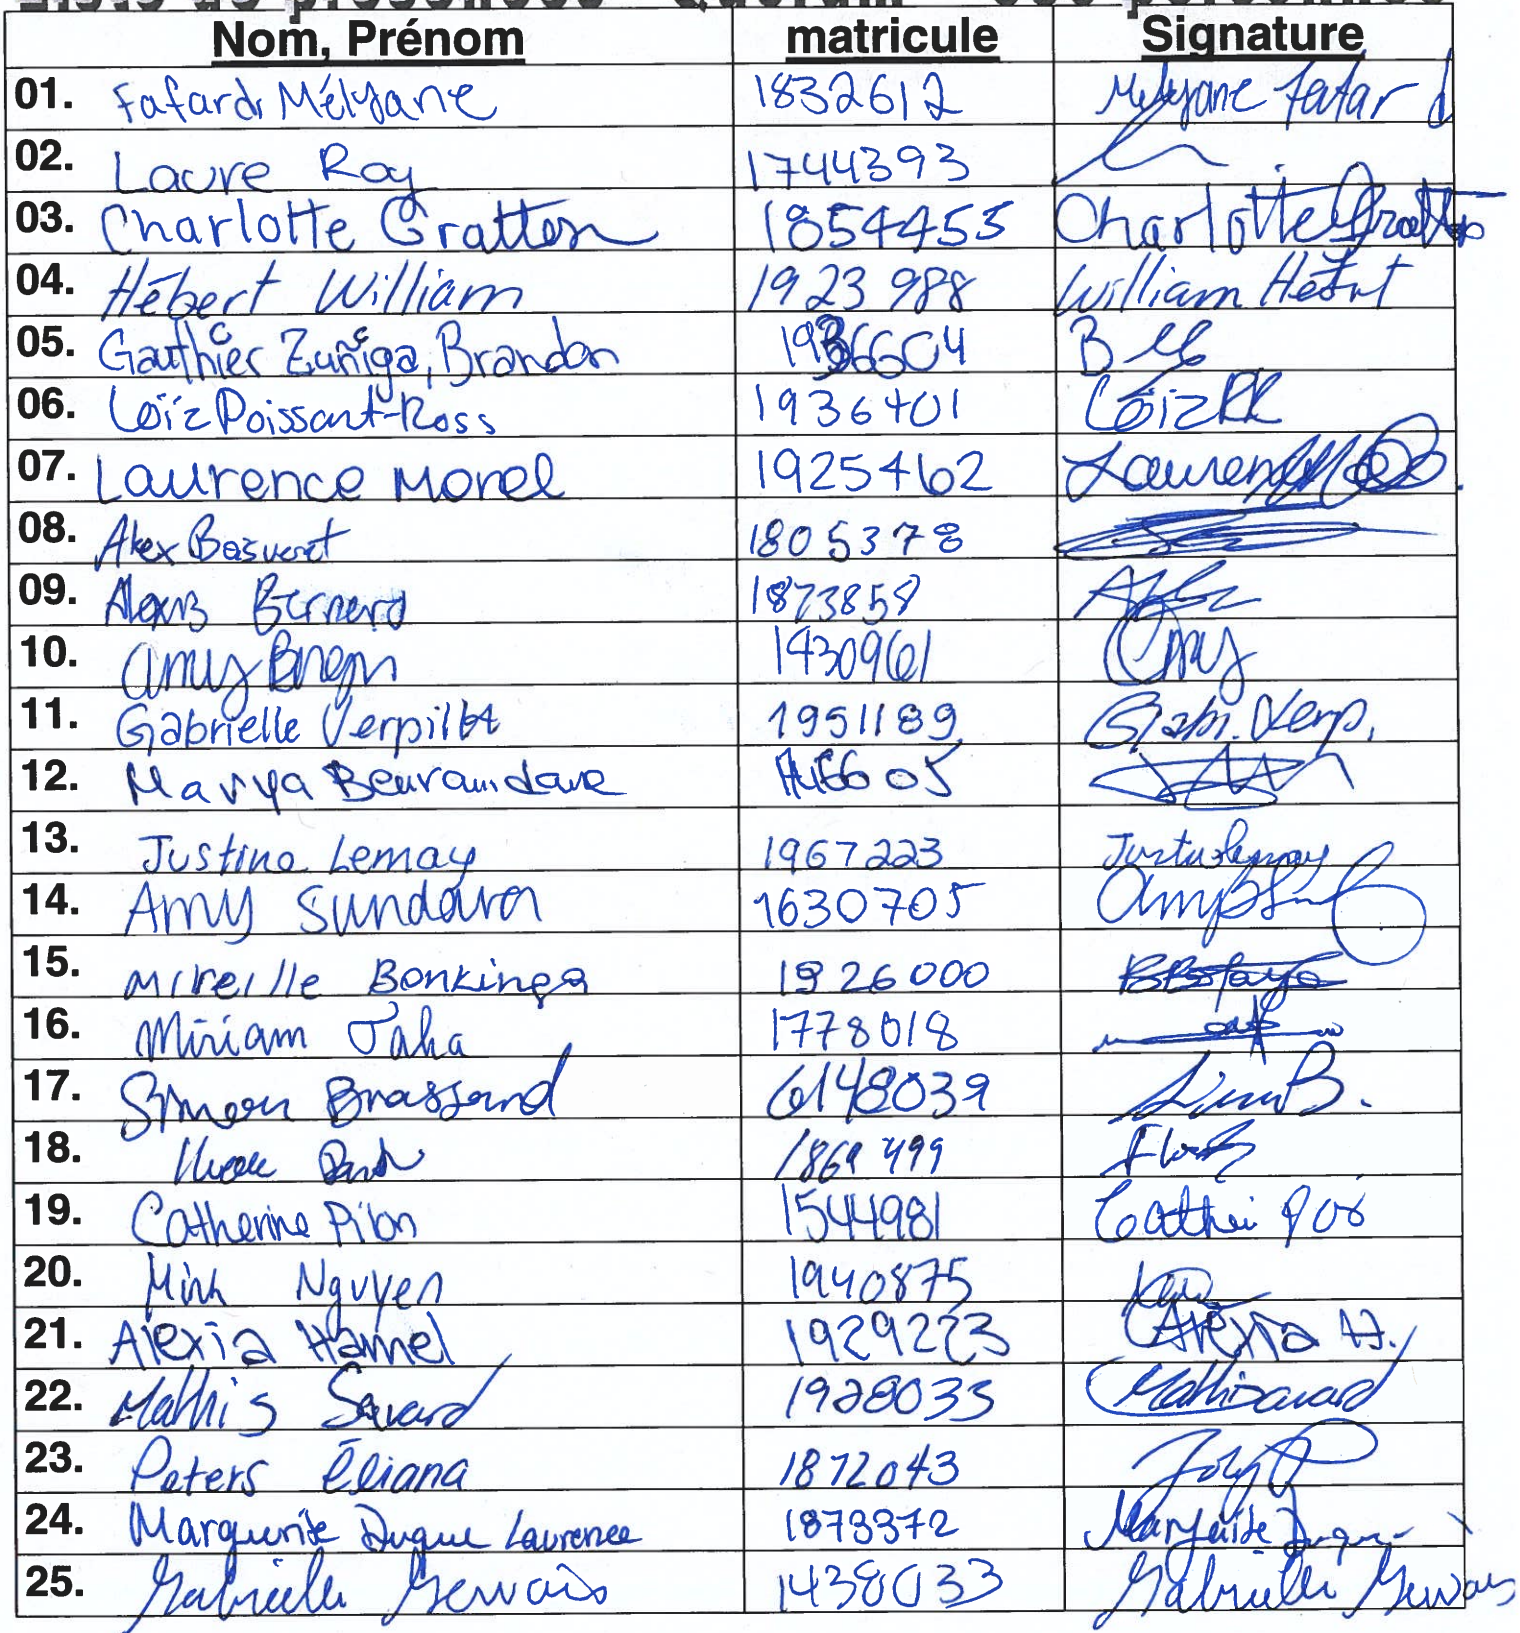 Liste de présences - Quorum - personnes
Nom, Prénom matricule Signature
01. Fafard, Mélyane 1832612 Mélyane Fafard
02. Laure Roy 1744393
03. Charlotte Gratton 1854455 Charlotte Gratton
04. Hébert William 1923988 William Hébert
05. Gauthier Zuñiga, Brandon 1936604 B
06. Loïz Poissant-Ross 1936401 Loïz PR
07. Laurence Morel 1925462 Laurence
08. Alex 1805378
09. Alexis Bernard 1873858
10. Amy 1430961 Amy
11. Gabrielle Verpillot 1951189 Gabri. Verp.
12. Marya
13. Justine Lemay 1967223 Justine Lemay
14. Amy Sundara 1630705 Amy
15. Mireille Bonkinga 1926000
16. Miriam Taha 1778018
17. Simon Brassard 6148039 Simon B.
18. 1869499
19. Catherine Pilon 1544981
20. Minh Nguyen 1940875
21. Alexia Hamel 1929223 Alexia H.
22. Mathis Savard 1928035 Mathis Savard
23. Peters Éliana 1872043
24. Marguerite Duque Laurence 1873372 Marguerite Duque
25. Gabrielle Gervais 1438033 Gabrielle Gervais